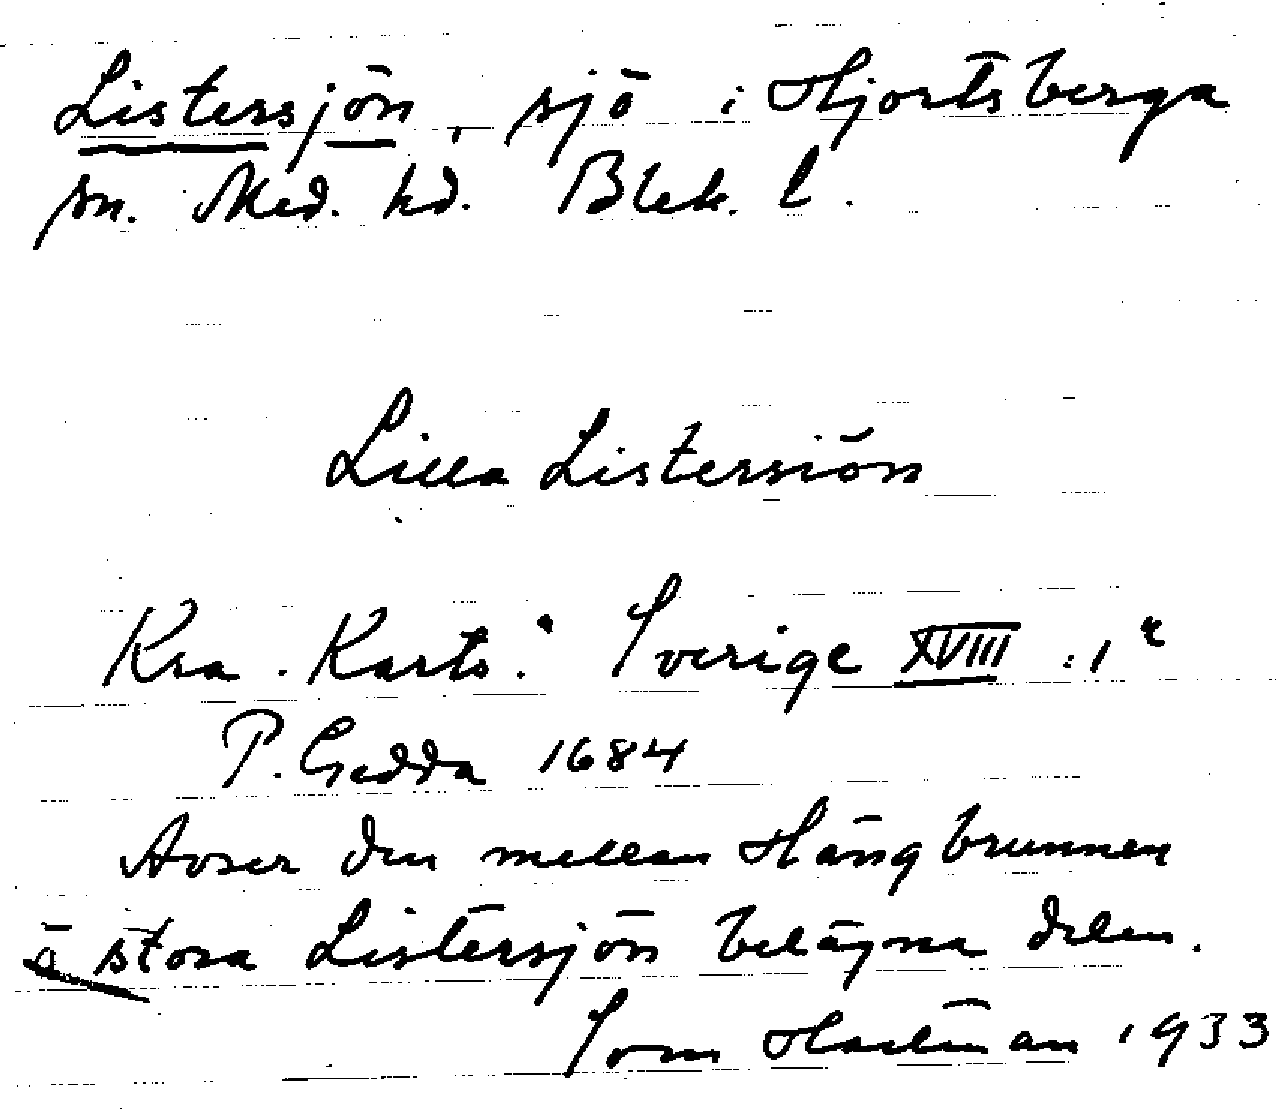 Listersjön, sjö i Hjortsberga
sn. Med. hd. Blek. l.
Lilla Listersiön
Kra. Karto. Sverige XVIII : 1
P. Gedda 1684
Avser den mellan Hängbrunnen
å stora Listersjön belägna delen.
Tom Hartman 1933